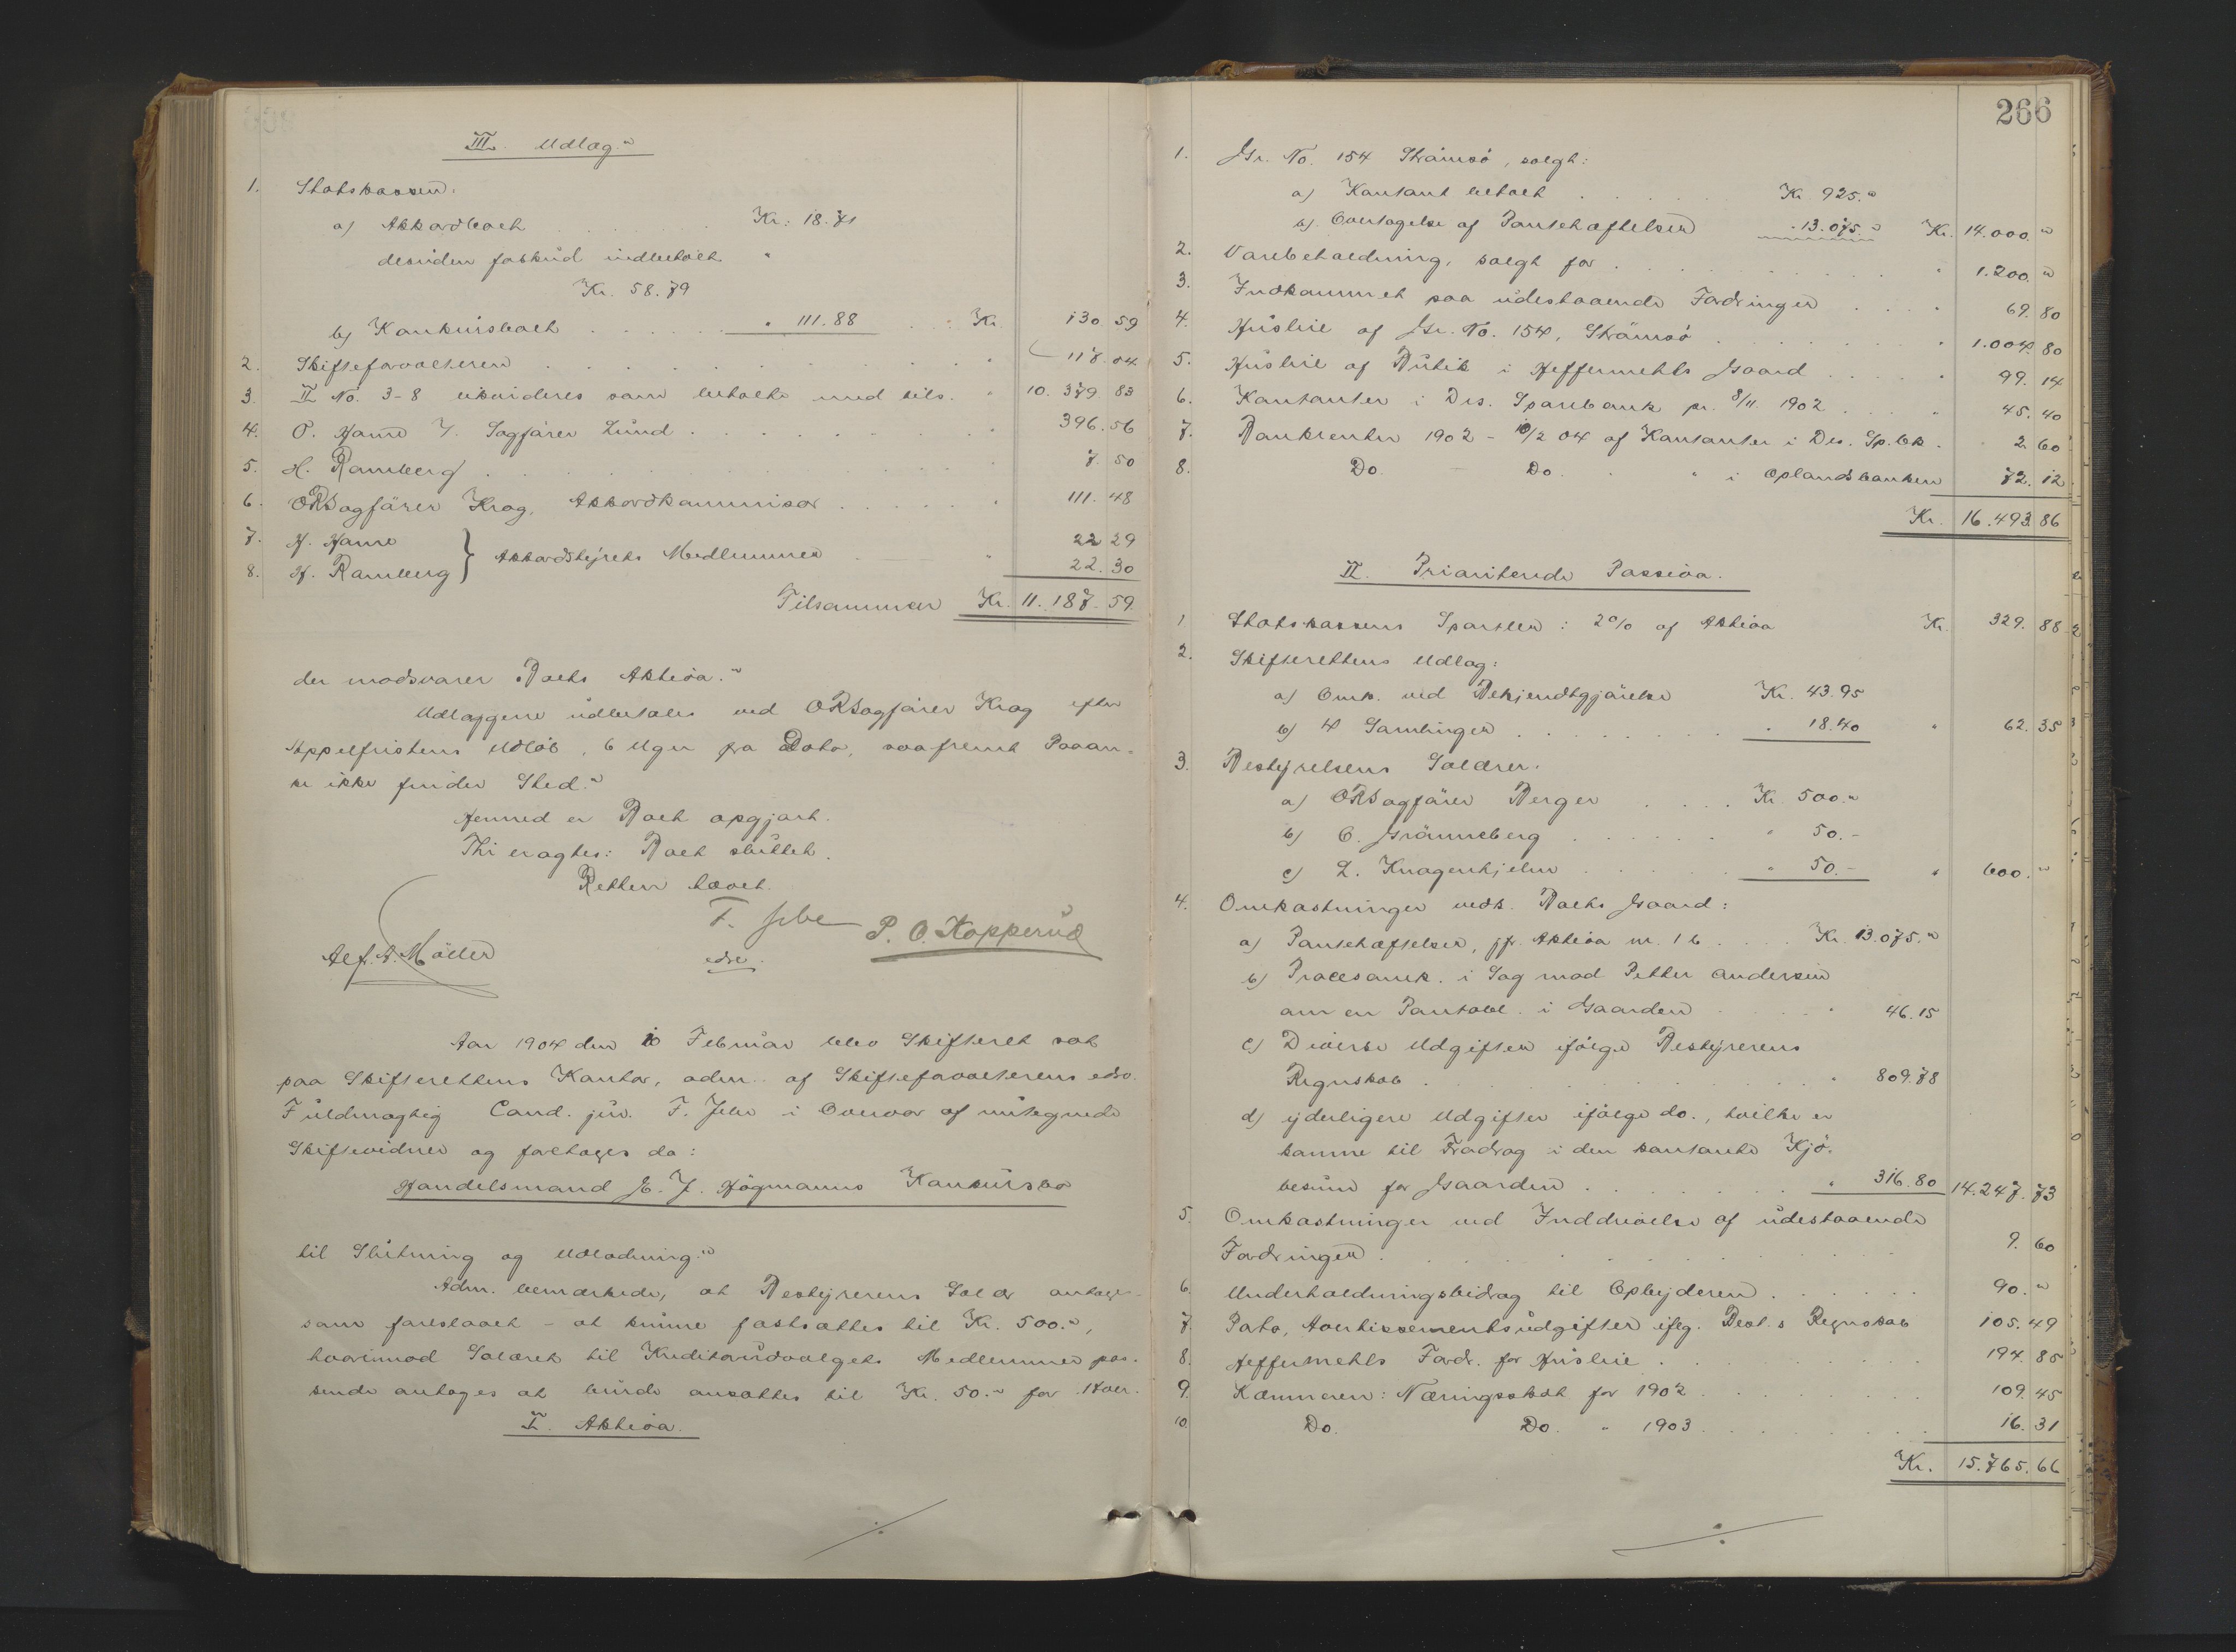 III. Udlæg.
1. Statskassen:
a) Akkordboet . . . . . . Kr. 18.71
desuden forskud indbetalt
Kr. 58.79
b) Konkursboet . . . . . " 111.88 . . Kr. 130.59
2. Skifteforvalteren . . . . . . . . . " 117.04
3. II No. 3-8 likvideres som betalte med tils. " 10.379.83
4. O. Hamre v. Sagfører Lund . . . . . . . " 396.56
5. H. Ramberg . . . . . . . . . . " 7.50
6. ORSagfører Krog, Akkordkommissær . . . . . " 111.48
7. H. Hamre } Akkordstyrets Medlemmer 22.29
8. H. Ramberg " 22.30
Tilsammen Kr. 11.187.59
der modsvarer Boets Aktiva.
Udlæggene udbetales ved ORSagfører Krog efter
Appelfristens Udløb, 6 Uger fra Dato, saafremt Paaan-
ke ikke finder Sted.
Hermed er Boet opgjort.
Thi eragtes: Boet sluttet.
Retten hævet.
F. Jebe
edsv.
P. O. Kopperud
Alf. A. Møller
Aar 1904 den 10 Februar blev Skifteret sat
paa Skifterettens Kontor, adm. af Skifteforvalterens edsv.
Fuldmægtig Cand. jur. F. Jebe i Overvær af undtegnede
Skiftevidner og foretoges da:
Handelsmand E. J. Högmanns Konkursbo
til Slutning og Udlodning.
Adm. bemærkede, at Bestyrerens Salær antages
som foreslaaet - at kunne fastsættes til Kr. 500.",
hvorimod Salæret til Kreditorudvalgets Medlemmer pas-
sende antages at burde ansættes til Kr. 50." for hver.
I. Aktiva.
266
1. Gr. No. 154 Strømsø, solgt:
a) Kontant betalt . . . . . Kr. 925."
b) Overtagelse af Pantehæftelser " 13.075." Kr. 14.000."
2. Varebeholdning, solgt for . . . . . . . . . " 1.200."
3. Indkommet paa udestaaende Fordringer . . . . " 69.80
4. Husleie af Gr. No. 154, Strømsø . . . . . . . " 1.004.80
5. Husleie af Butik i Heffermehls Gaard . . . . . " 99.14
6. Kontanter i Drs. Sparebank pr. 8/11 1902 . . . . " 45.40
7. Bankrenter 1902 - 10/2 04 af Kontanter i Drs. Sp.bk. " 2.60
8. Do. - Do. " i Oplandsbanken 72.12
Kr. 16.493.86
II. Prioriterede Passiva.
1 Statskassens Sportler: 2% af Aktiva Kr. 329.88
2. Skifterettens Udlæg:
a) Omk. ved Bekjendtgjørelse Kr. 43.95
b) 4 Samlinger . . . . . . . . " 18.40 " 62.35
3. Bestyrelsens Salærer.
a) ORSagfører Berger . . . . Kr. 500."
b) C. Grønneberg . . . . . . " 50.-
c) L. Knagenhjelm . . . . . " 50.- " 600."
4. Omkostninger vedk. Boets Gaard:
a) Pantehæftelser, jfr. Aktiva nr. 1 b . . . . Kr. 13.075."
b) Procesomk. i Sag mod Petter Andersen
om en Pantobl. i Gaarden . . . . . " 46.15
c) Diverse Udgifter ifølge Bestyrerens
Regnskab . . . . . . . . . . . . " 809.78
d) yderligere Udgifter ifølge do., hvilke er
komne til Fradrag i den kontante Kjö-
besum for Gaarden . . . . . . . . " 316.80 14.247.73
5. Omkostninger ved Inddrivelse af udestaaende
Fordringer . . . . . . . . . . . 9.60
6. Underholdningsbidrag til Opbyderen . . . . . . 90."
7. Porto, Avertissementsudgifter iflg. Best.s Regnskab 105.49
8. Heffermehls Fordr. for Husleie . . . . . . . 194.85
9. Kæmneren: Næringsskat for 1902 . . . . . . . 109.45
10. Do. Do. " 1903 . . . . . . . 16.31
Kr. 15.765.66